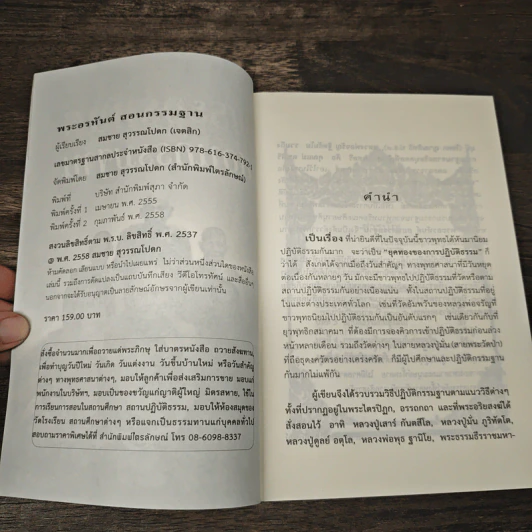 พระอรหันต์ สอนกรรมฐาน
ผู้เรียบเรียง สมชาย สุวรรณโปดก (เจตสิก)
เลขมาตรฐานสากลประจำหนังสือ (ISBN) 978-616-374-792-1
จัดพิมพ์โดย สมชาย สุวรรณโปดก (สำนักพิมพ์ไตรลักษณ์)
พิมพ์ที่ บริษัท สำนักพิมพ์สุภา จำกัด
พิมพ์ครั้งที่ 1 เมษายน พ.ศ. 2555
พิมพ์ครั้งที่ 2 กุมภาพันธ์ พ.ศ. 2558
สงวนลิขสิทธิ์ตาม พ.ร.บ. ลิขสิทธิ์ พ.ศ. 2537
@ พ.ศ. 2558 สมชาย สุวรรณโปดก
ห้ามคัดลอก เลียนแบบ หรือนำไปเผยแพร่ ไม่ว่าส่วนหนึ่งส่วนใดของหนังสือ
เล่มนี้ รวมถึงการดัดแปลงเป็นแถบบันทึกเสียง วีดีโอโทรทัศน์ และสื่ออื่นๆ
นอกจากจะได้รับอนุญาตเป็นลายลักษณ์อักษรจากผู้เขียนเท่านั้น
ราคา 159.00 บาท
สั่งซื้อจำนวนมากเพื่อถวายแด่พระภิกษุ ใส่บาตรหนังสือ ถวายสังฆทาน,
เพื่อทำบุญวันปีใหม่ วันเกิด วันแต่งงาน วันขึ้นบ้านใหม่ หรือวันสำคัญ
ต่างๆ ทางพุทธศาสนาต่างๆ, มอบให้ลูกค้าเพื่อส่งเสริมการขาย มอบแก่
พนักงานในบริษัทฯ, มอบเป็นของขวัญแก่ญาติผู้ใหญ่ มิตรสหาย, ใช้ใน
การเรียนการสอนในสถานศึกษา สถานปฏิบัติธรรม, มอบให้ห้องสมุดของ
วัดโรงเรียน สถานศึกษาต่างๆ หรือแจกเป็นธรรมทานแก่บุคคลทั่วไป
สอบถามราคาพิเศษได้ที่ สำนักพิมพ์ไตรลักษณ์ โทร 08-6098-8337
คำนำ
เป็นเรื่อง ที่น่ายินดีที่ในปัจจุบันนี้ชาวพุทธได้หันมานิยม
ปฏิบัติธรรมกันมาก จะว่าเป็น "ยุคทองของการปฏิบัติธรรม" ก็
ว่าได้ สังเกตได้จากเมื่อถึงวันสำคัญๆ ทางพุทธศาสนาที่มีวันหยุด
ต่อเนื่องกันหลายๆ วัน มักจะมีชาวพุทธไปปฏิบัติธรรมที่วัดหรือตาม
สถานปฏิบัติธรรมกันอย่างเนืองแน่น ทั้งในสถานปฏิบัติธรรมที่อยู่
ในและต่างประเทศทั่วโลก เช่นที่วัดอัมพวันของหลวงพ่อจรัญที่
ชาวพุทธนิยมไปปฏิบัติธรรมกันเป็นอันดับแรกๆ เช่นเดียวกันกับที่
ยุวพุทธิกสมาคมฯ ที่ต้องมีการจองคิวการเข้าปฏิบัติธรรมก่อนล่วง
หน้าหลายเดือน รวมถึงวัดต่างๆ ในสายหลวงปู่มั่น (สายพระวัดป่า)
ที่ถือธุดงควัตรอย่างเคร่งครัด ก็มีผู้ไปศึกษาและปฏิบัติกรรมฐาน
กันมากไม่แพ้กัน
ผู้เขียนจึงได้รวบรวมวิธีปฏิบัติกรรมฐานตามแนววิธีต่างๆ
ทั้งที่ปรากฏอยู่ในพระไตรปิฎก, อรรถกถา และที่พระอริยสงฆ์ได้
สั่งสอนไว้ อาทิ หลวงปู่เสาร์ กันตสีโล, หลวงปู่มั่น ภูริทัตโต,
หลวงปู่ดูลย์ อตุโล, หลวงพ่อพุธ ฐานิโย, พระธรรมธีรราชมหา-